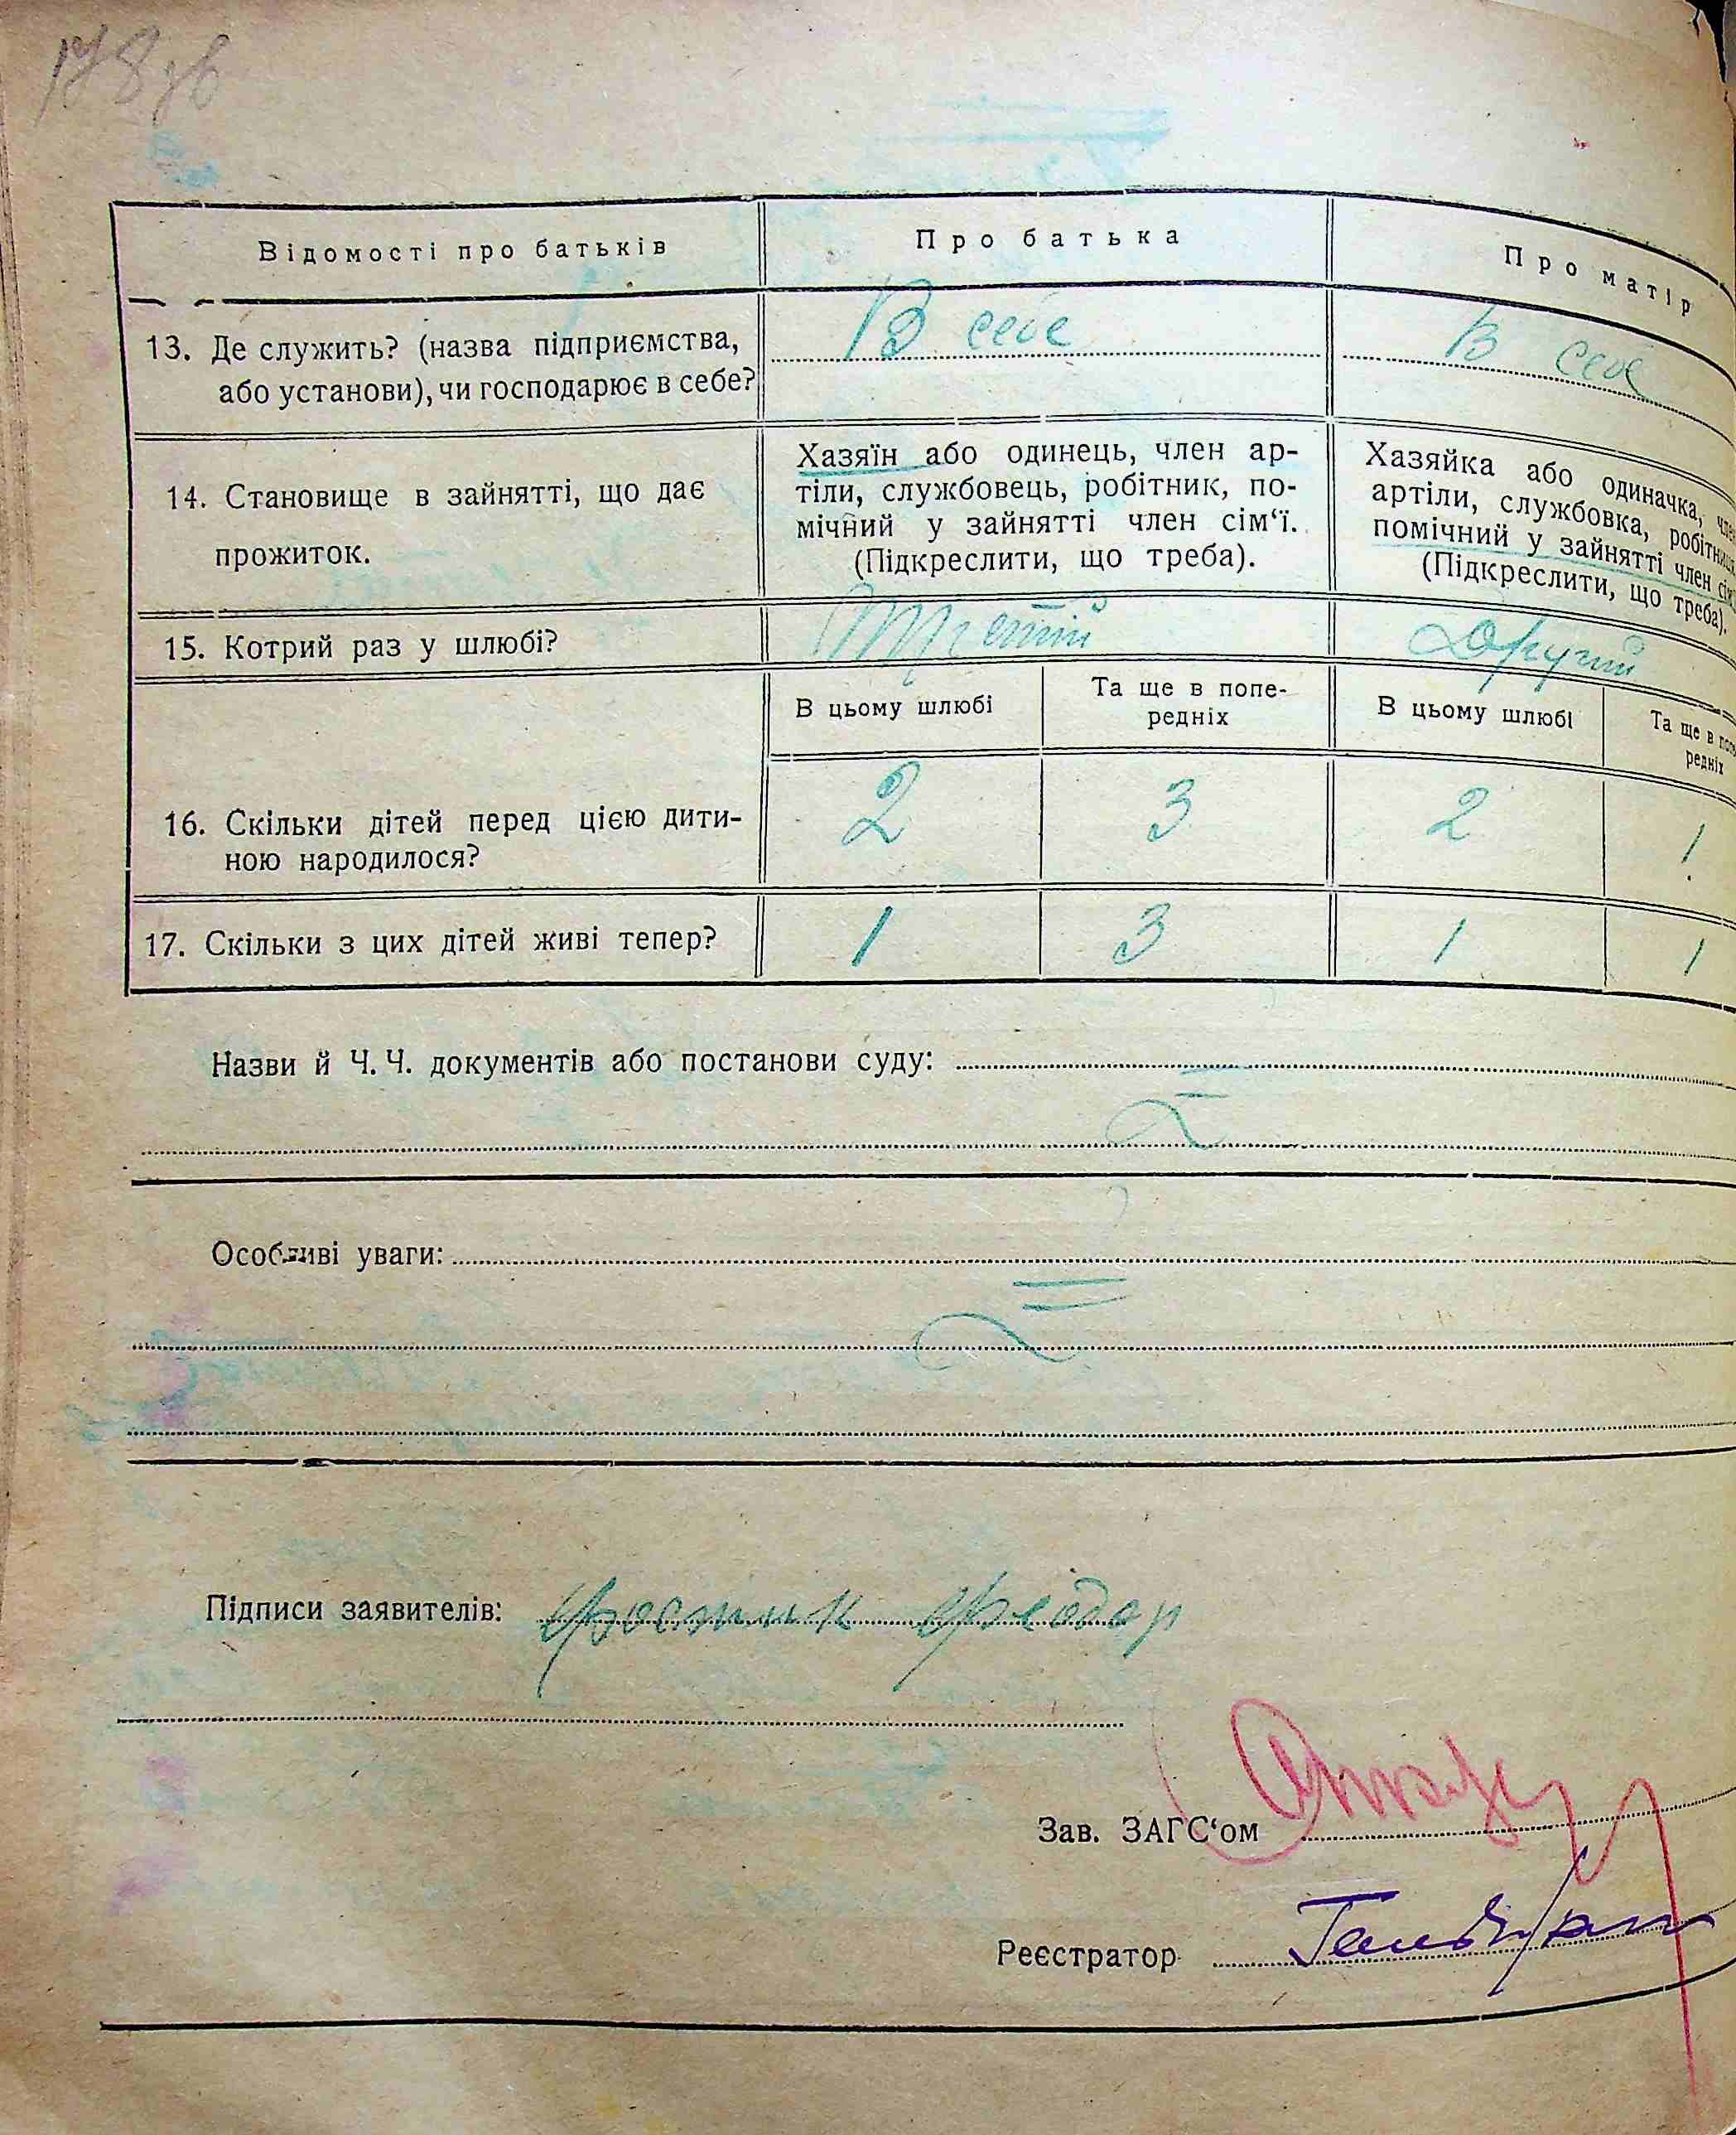 178зв
Відомості про батьків
Про батька
Про матір
13. Де служить? (назва підприємства,
або установи), чи господарює в себе?
В себе
В себе
14. Становище в зайнятті, що дає
прожиток.
Хазяїн або одинець, член ар-
тіли, службовець, робітник, по-
мічний у зайнятті член сім‘ї.
(Підкреслити, що треба).
Хазяйка або одиначка,
артіли, службовка,
помічний у зайнятті член
(Підкреслити, що треба).
15. Котрий раз у шлюбі?
Третій
Другий
В цьому шлюбі
Та ще в попе-
редніх
В цьому шлюбі
Та ще в
редніх
16. Скільки дітей перед цією дити-
ною народилося?
2
3
2
1
17. Скільки з цих дітей живі тепер?
1
3
1
1
Назви й Ч. Ч. документів або постанови суду:
Особливі уваги:
Підписи заявителів: Фостик Феодор
Зав. ЗАГС‘ом
Реєстратор